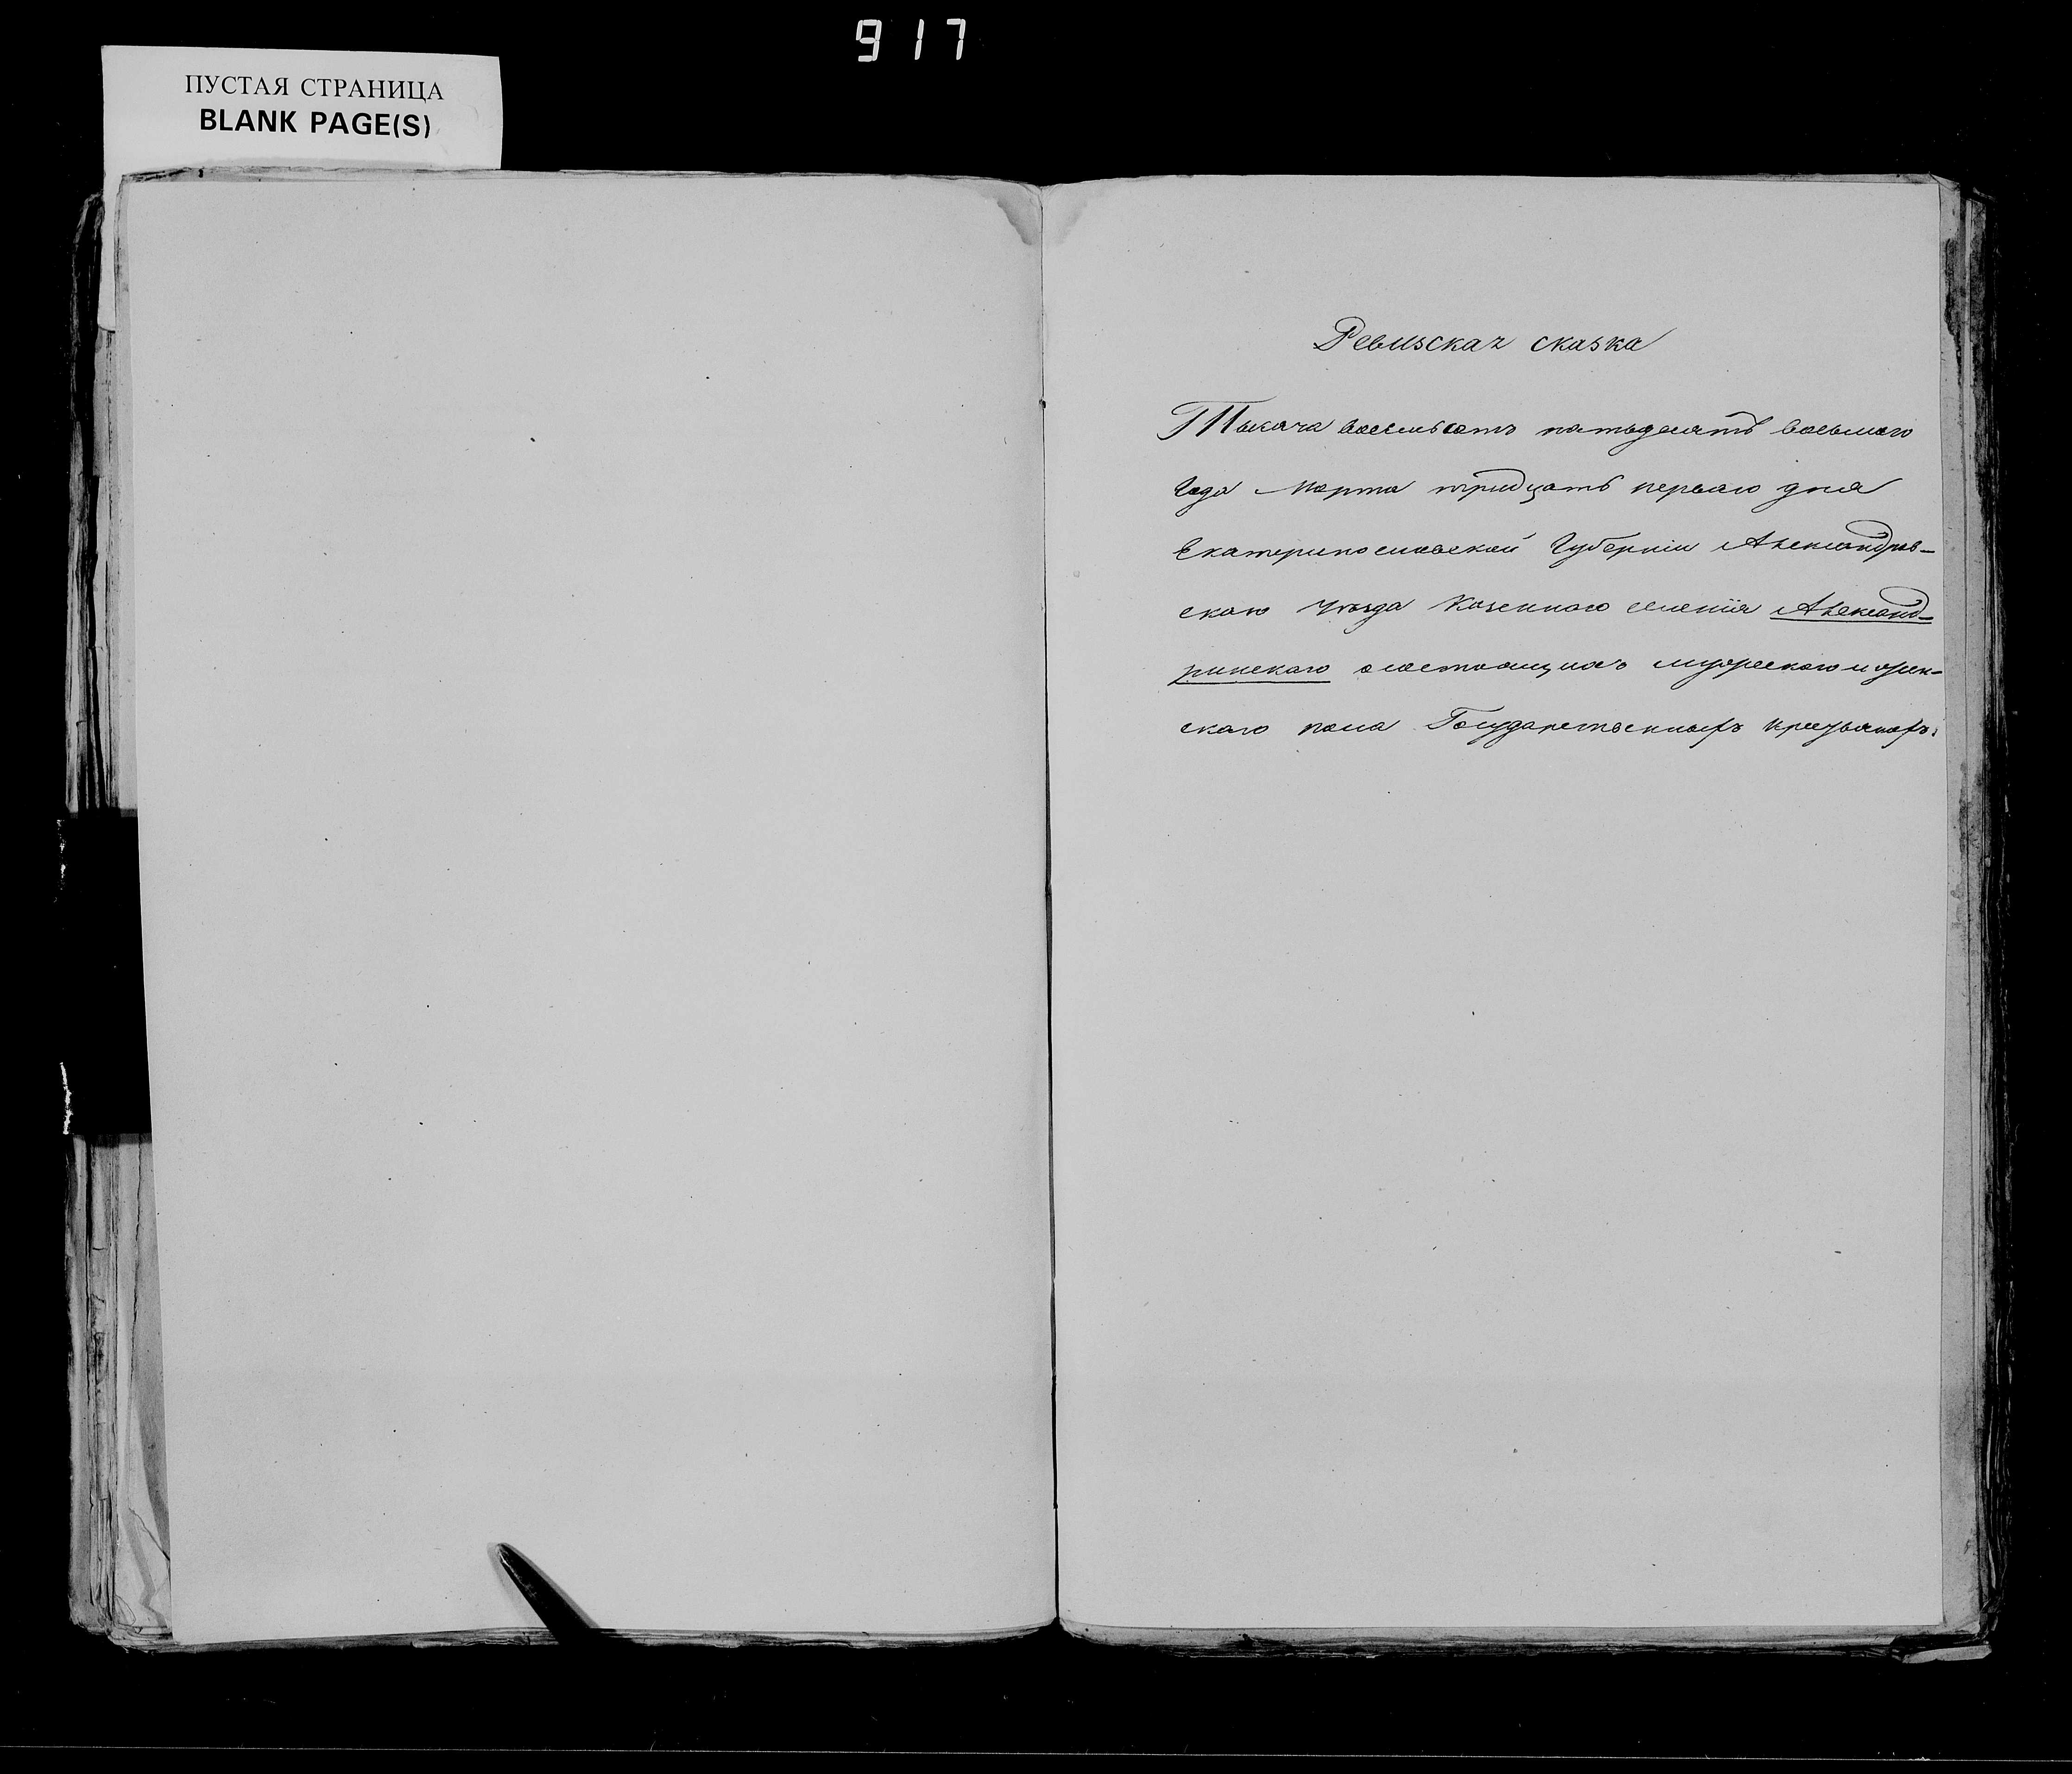 917
ПУСТАЯ СТРАНИЦА
BLANK PAGE(S)
Ревизская сказка
Тысяча восемьсотъ пятьдесятъ восьмого
Года Марта тридцать перваго дня
Екатеринославской Губерніи Александров-
скаго уѣзда Казеннаго селенія Александ-
ринскаго о состоящихъ мужескаго и жен-
скаго пола Государственныхъ крестьянахъ.